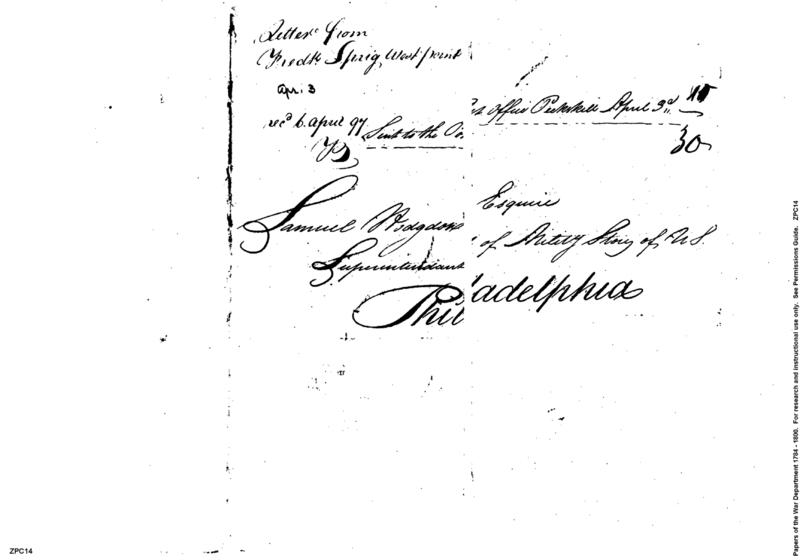 Letter from
Fredk Sprig West point
apr: 3
recd 6. april 97
Sent to the Post Office Peekskill April 3d
30
Samuel Hodgdon Esquire
Superintendant of Mility Stores of U.S.
Philadelphia
ZPC14
Papers of the War Department 1784 - 1800. For research and instructional use only. See Permissions Guide. ZPC14